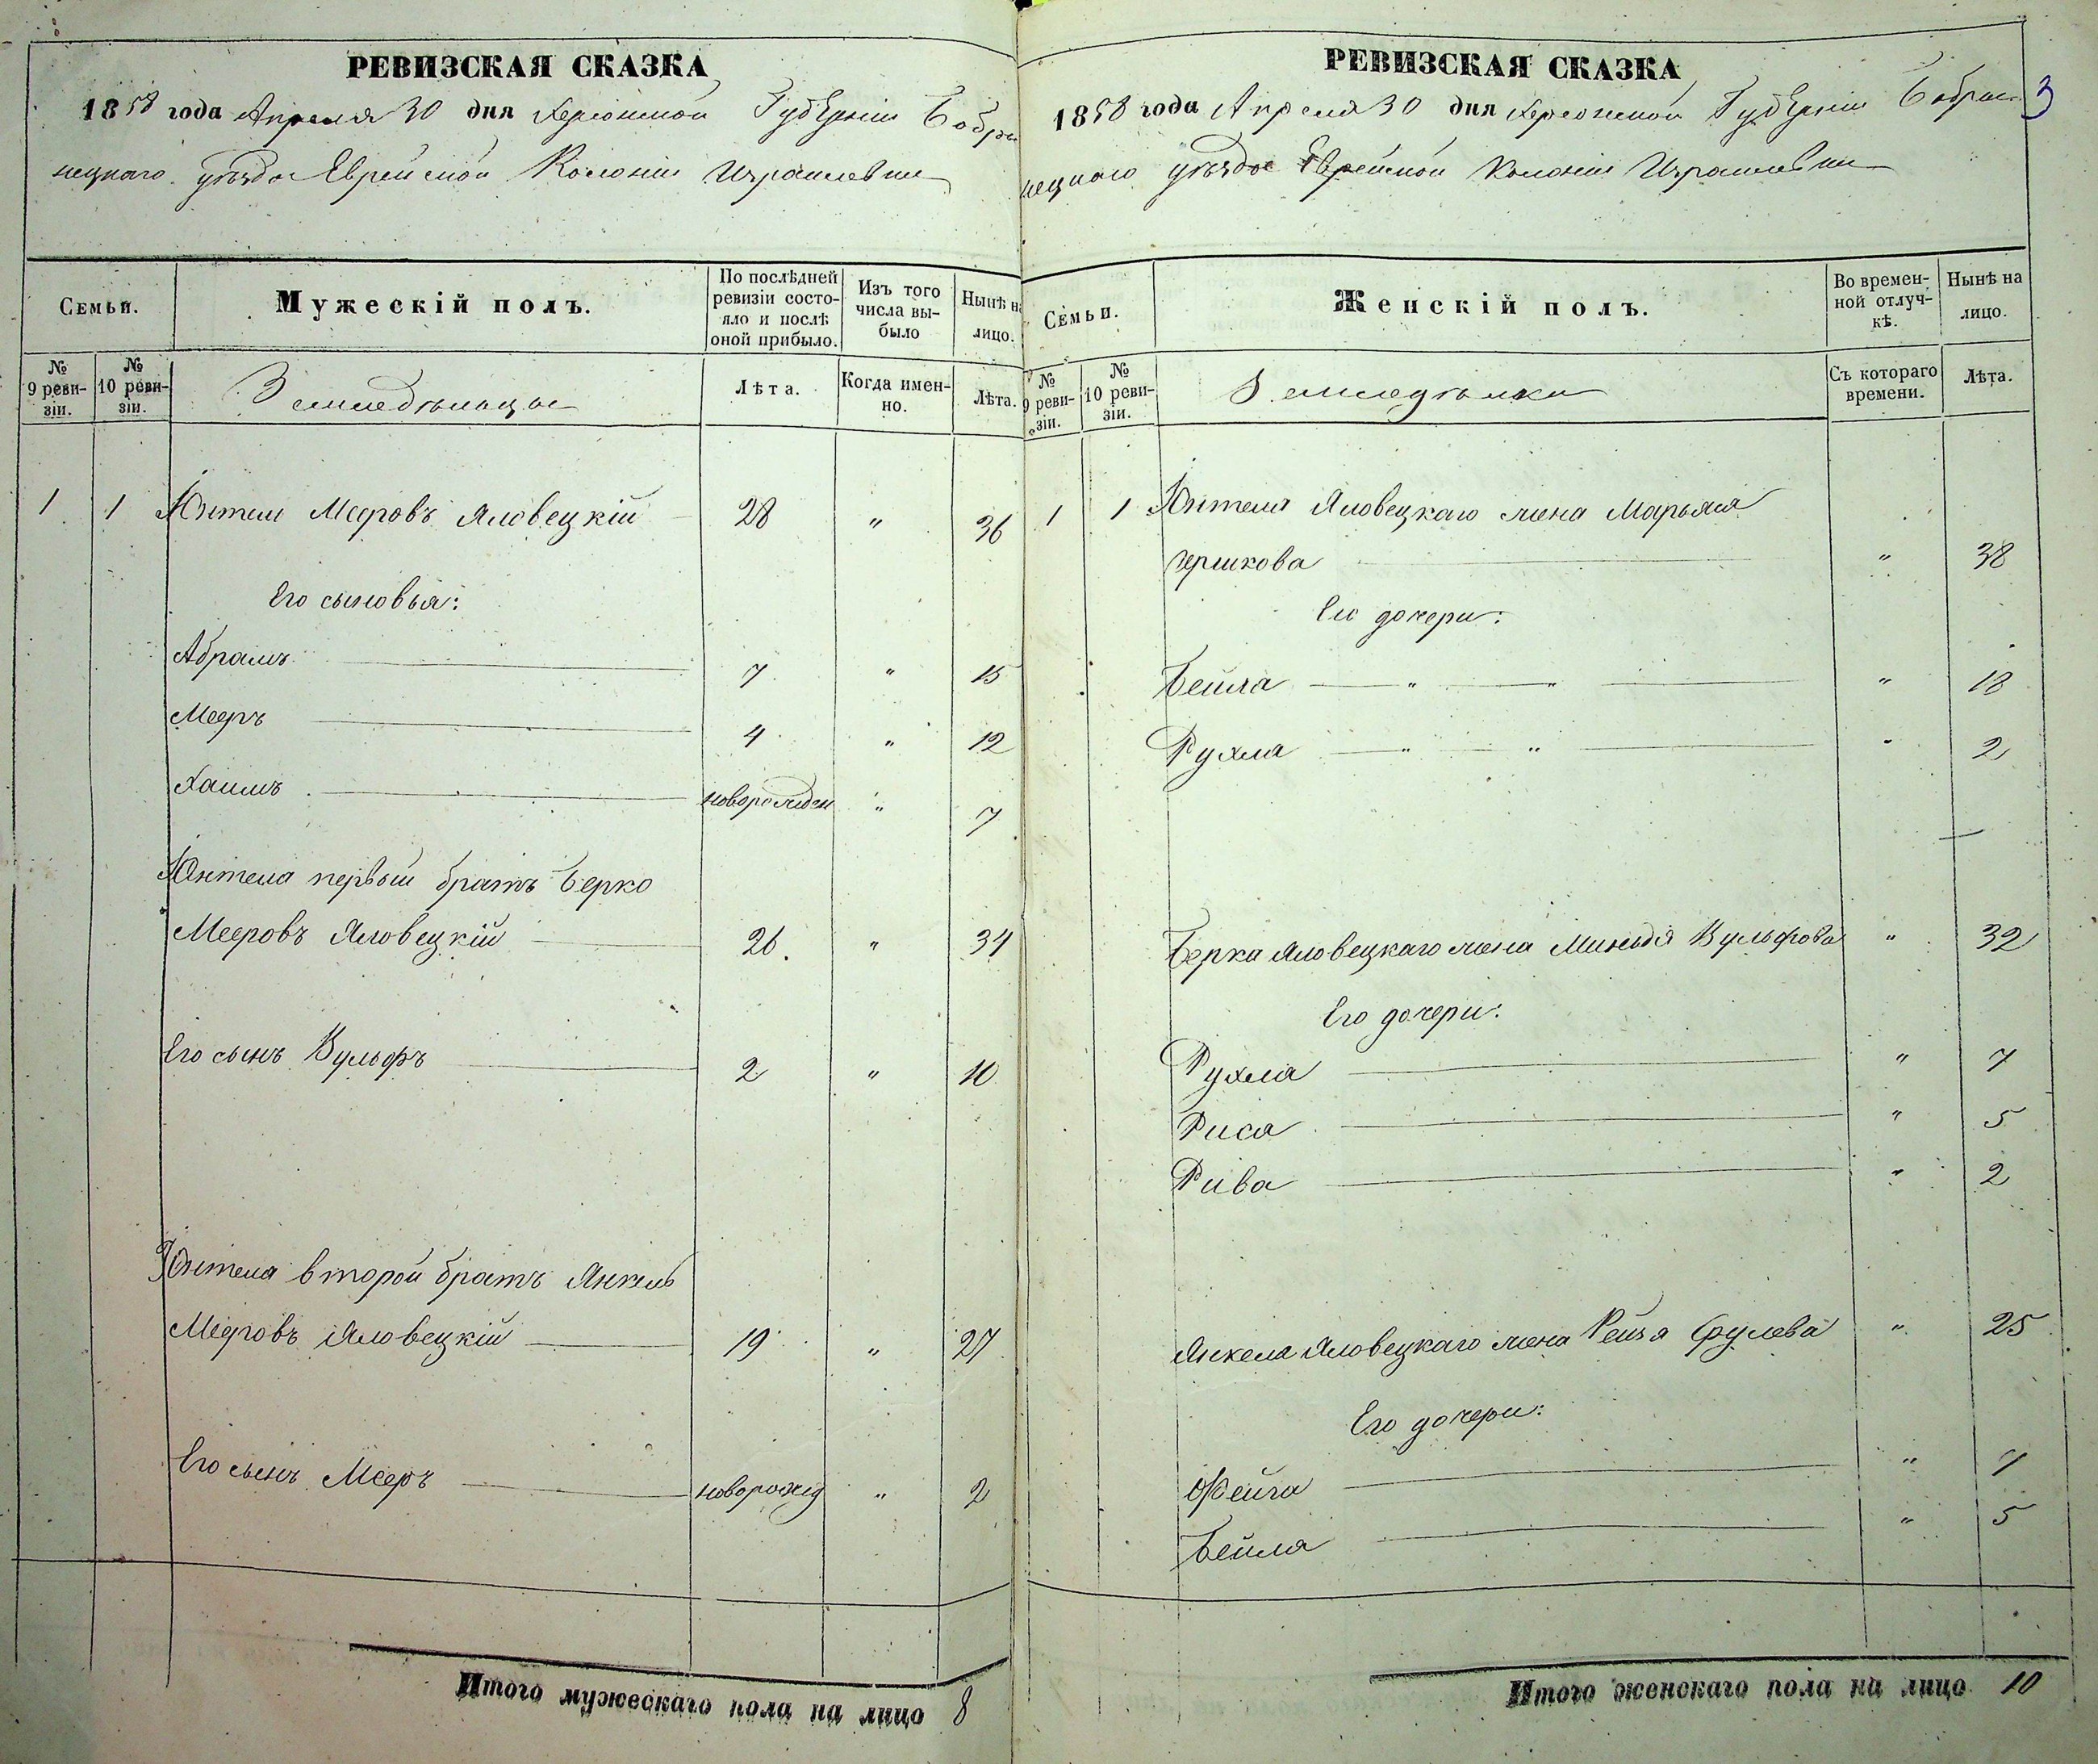 РЕВИЗСКАЯ СКАЗКА
1858 года Апреля 30 дня Херсонской Губерніи Бобри
нецкаго уѣзда Еврейской Колоніи Израилевки
Семьи.
Мужескій полъ.
По послѣдней ревизіи состояло и послѣ оной прибыло.
Изъ того числа выбыло
Нынѣ на лицо.
№ 9 ревизіи.
№ 10 ревизіи.
Земледѣльцы
Лѣта.
Когда именно.
Лѣта.
1 1 Юнтель Мееровъ Яловецкій 28 " 36
Его сыновья:
Абрамъ 7 " 15
Мееръ 4 " 12
Хаимъ новорожден " 7
Юнтеля первый братъ Берко
Мееровъ Яловецкій 26. " 34
Его сынъ Вульфъ 2 " 10
Юнтеля второй братъ Янкель
Мееровъ Яловецкій 19 " 27
Его сынъ Мееръ новорожд " 2
Итого мужескаго пола на лицо 8
РЕВИЗСКАЯ СКАЗКА
3
1858 года Апреля 30 дня Херсонской Губерніи Бобри
нецкаго уѣзда Еврейской Колоніи Израилевки
Семьи.
Женскій полъ.
Во временной отлучкѣ.
Нынѣ на лицо.
№ 9 ревизіи.
№ 10 ревизіи.
Земледѣлки
Съ котораго времени.
Лѣта.
1 1 Юнтеля Яловецкаго жена Марьяся
Гершкова " 38
Его дочери:
Бейла " " " 18
Рухля " " " 2
Берка Яловецкаго жена Миньдя Вульфова " 32
Его дочери:
Рухля " 7
Риса " 5
Рива " 2
Янкеля Яловецкаго жена Рейзя Срулева " 25
Его дочери:
Фейга " 7
Бейла " 5
Итого женскаго пола на лицо 10